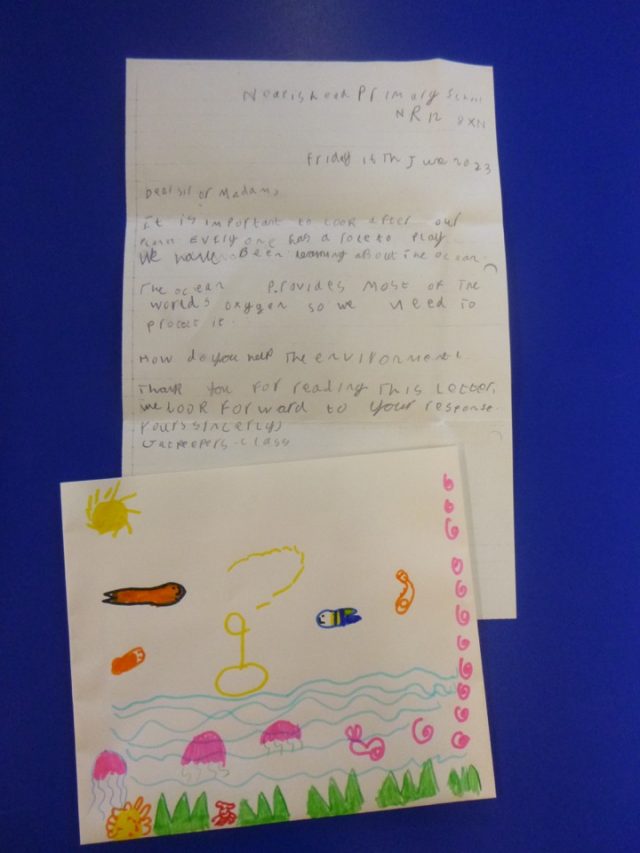 Primary School
NR12 8XN
Friday 16th June 2023
Dear sir or Madam,
It is important to look after our
Every one has a role to play.
We have Been learning about the ocean.
The ocean provides most of the
worlds oxygen so we need to
protect it.
How do you help the environment?
Thank you for reading this Letter,
we Look forward to your response.
yours sincerely
class